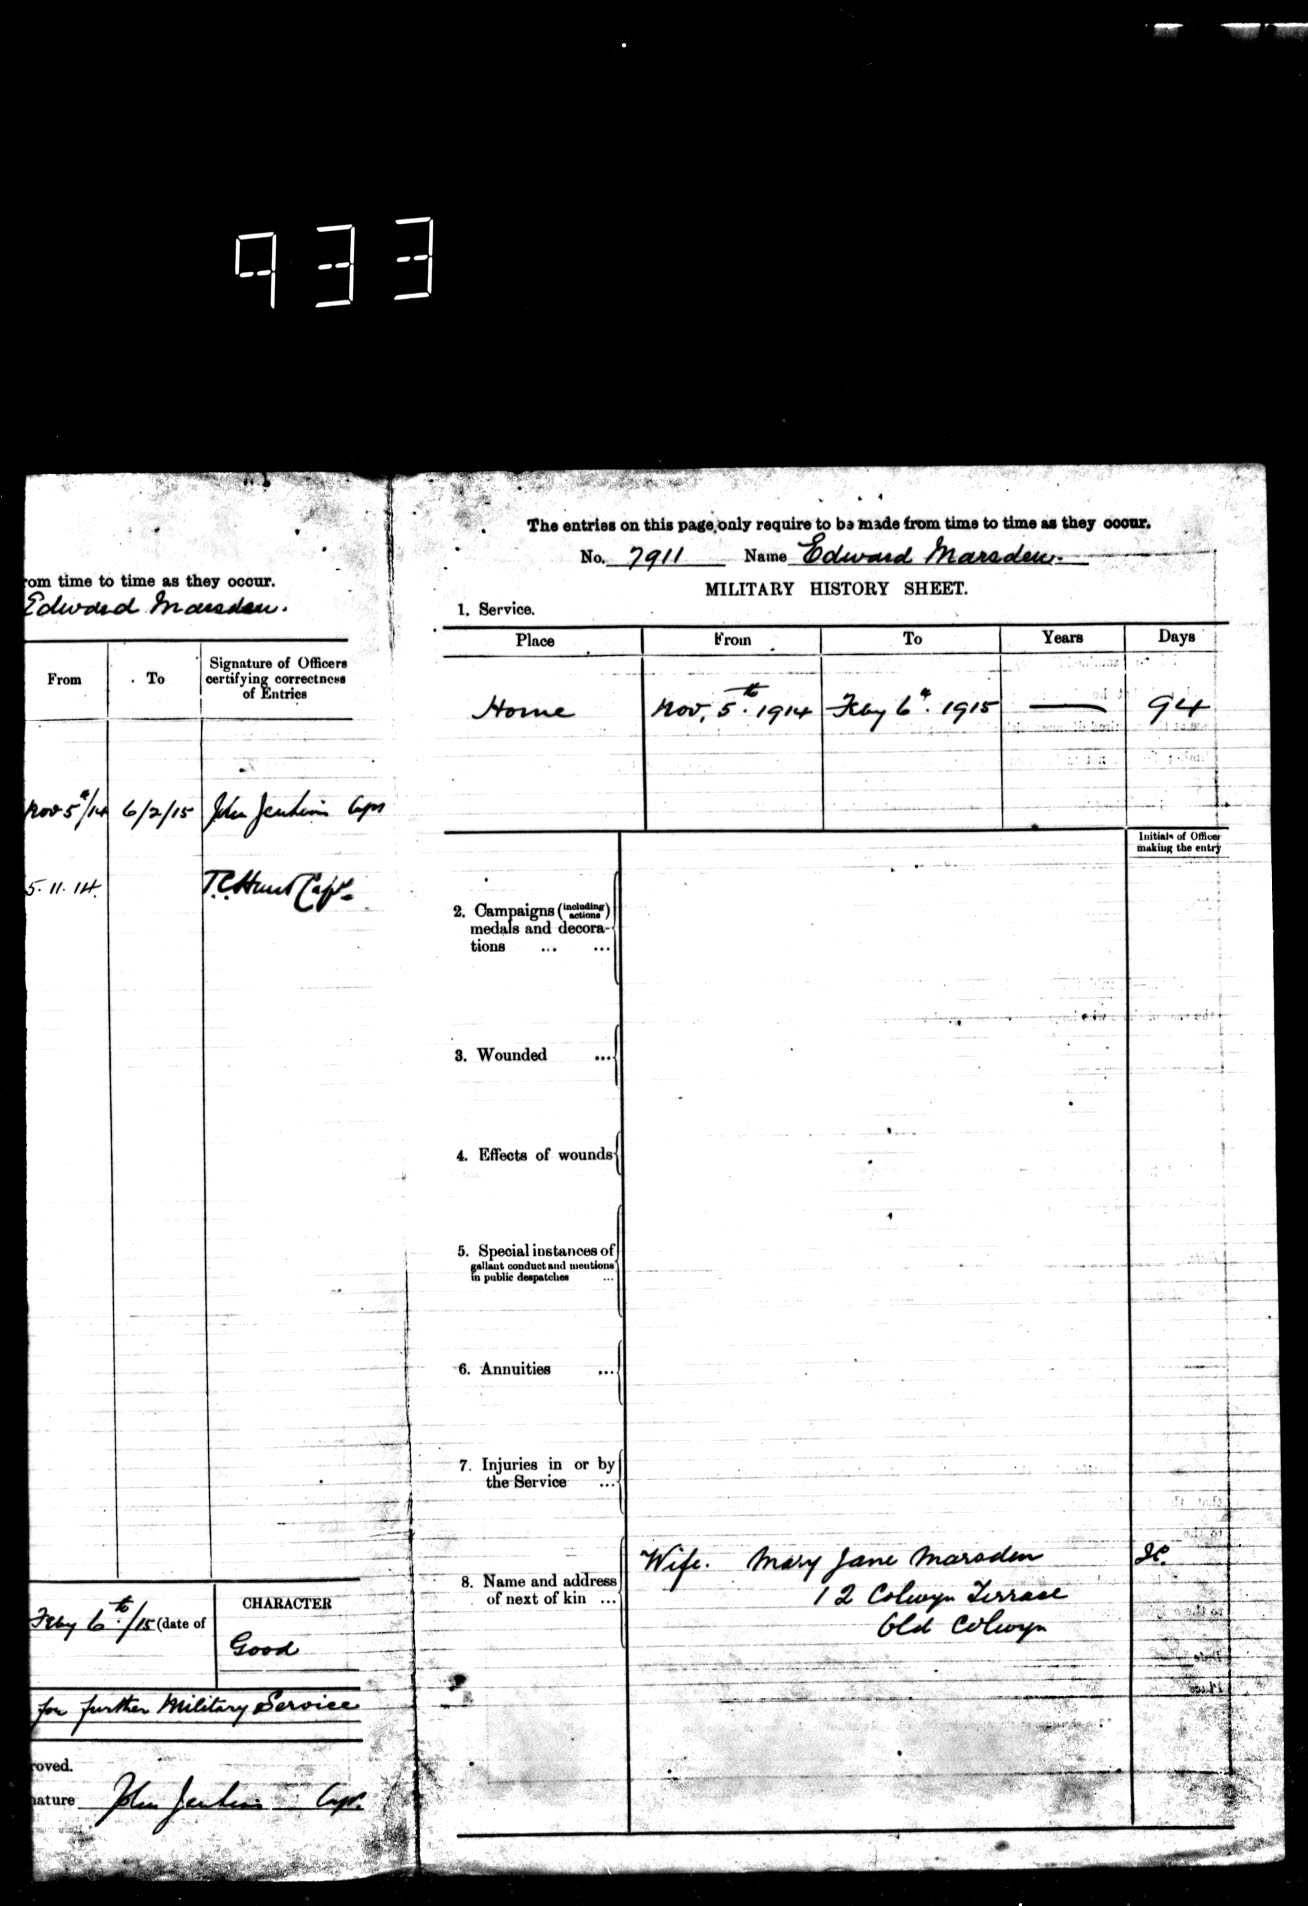 933
rom time to time as they occur.
Edward Marsden.
From
To
Signature of Officers
certifying correctness
of Entries
Nov 5th/14
6/2/15
John Jenkins Capt
5.11.14.
T.C. Hunt Capt.
Feby 6th/15 (date of
CHARACTER
Good
for further Military Service
roved.
nature John Jenkins Capt.
The entries on this page only require to be made from time to time as they occur.
No. 7911 Name Edward Marsden.
MILITARY HISTORY SHEET.
1. Service.
Place From To Years Days
Home Nov. 5th. 1914 Feby 6th. 1915 — 94
Initials of Officer
making the entry
2. Campaigns (including actions)
medals and decora-
tions ... ...
3. Wounded ...
4. Effects of wounds
5. Special instances of
gallant conduct and mentions
in public despatches ...
6. Annuities ...
7. Injuries in or by
the Service ...
8. Name and address
of next of kin ...
Wife. Mary Jane Marsden
12 Colwyn Terrace
Old Colwyn